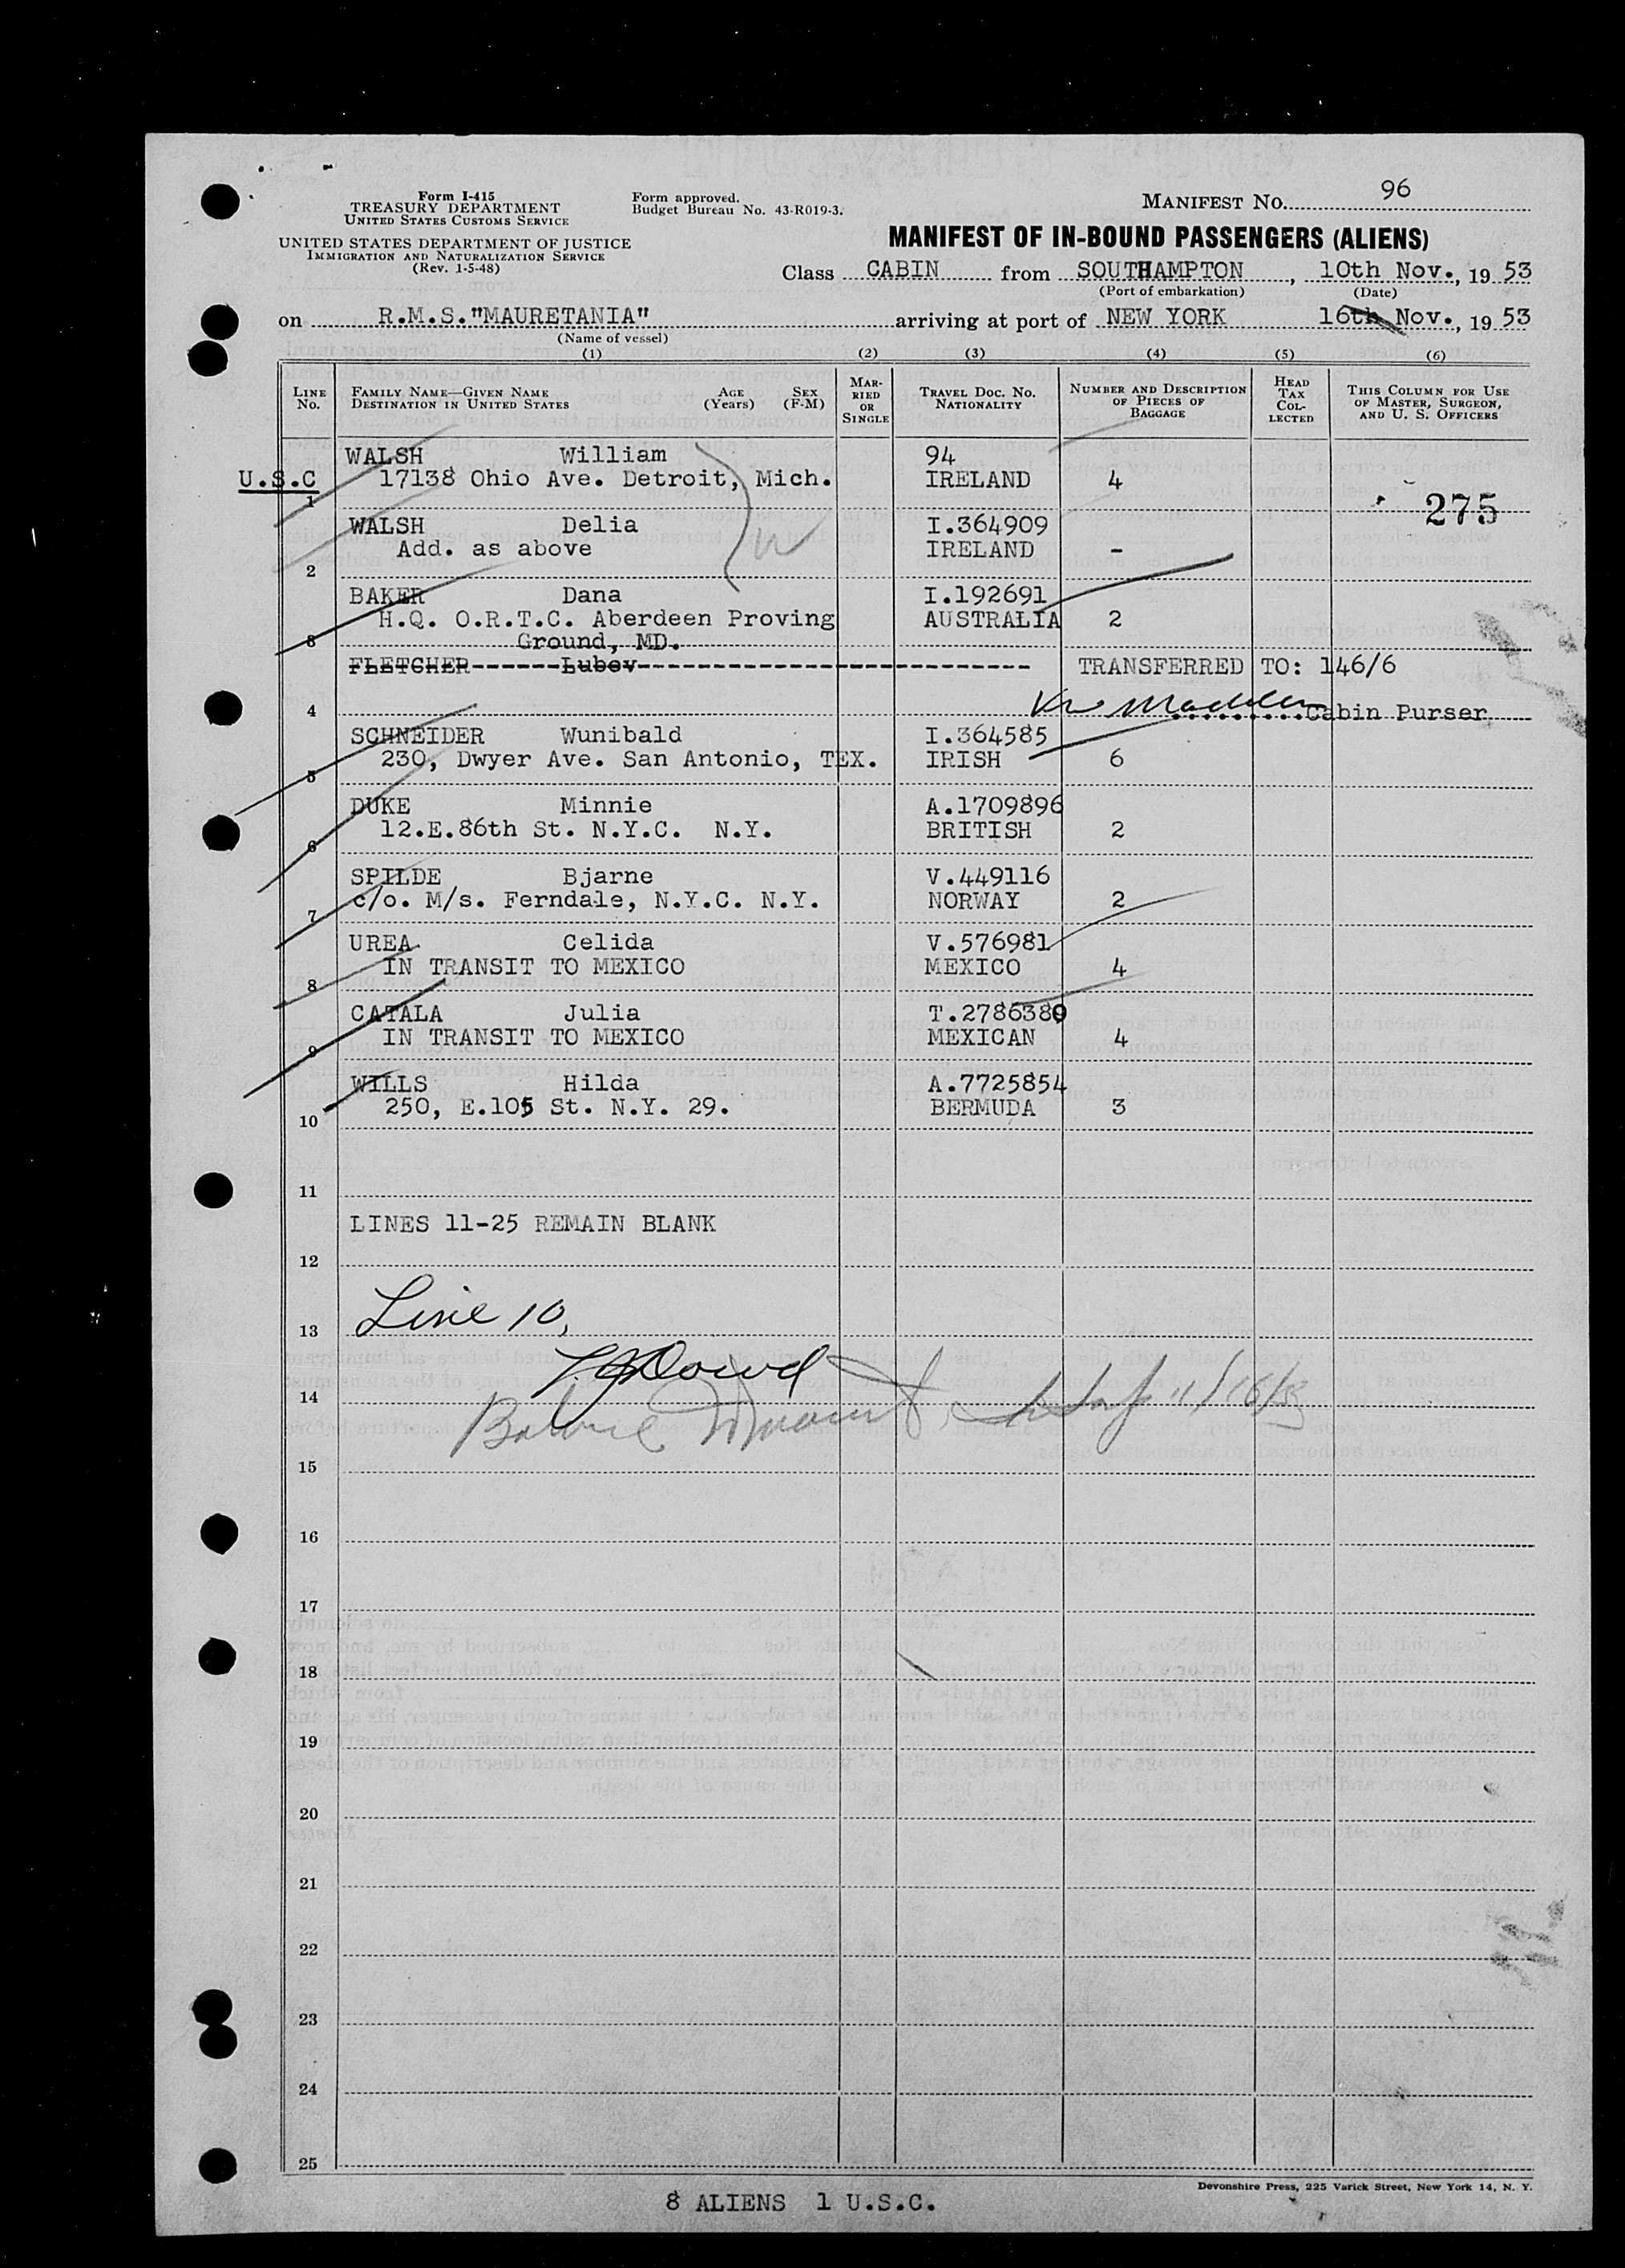 Form I-415
TREASURY DEPARTMENT
UNITED STATES CUSTOMS SERVICE
UNITED STATES DEPARTMENT OF JUSTICE
IMMIGRATION AND NATURALIZATION SERVICE
(Rev. 1-5-48)
Form approved.
Budget Bureau No. 43-R019-3.
MANIFEST NO. 96
MANIFEST OF IN-BOUND PASSENGERS (ALIENS)
Class CABIN from SOUTHAMPTON, 10th Nov., 19 53
(Port of embarkation) (Date)
on R.M.S."MAURETANIA" arriving at port of NEW YORK 16th Nov., 19 53
(Name of vessel)
(1) (2) (3) (4) (5) (6)
LINE No. FAMILY NAME—GIVEN NAME DESTINATION IN UNITED STATES AGE (Years) SEX (F-M) MARRIED OR SINGLE TRAVEL DOC. NO. NATIONALITY NUMBER AND DESCRIPTION OF PIECES OF BAGGAGE HEAD TAX COLLECTED THIS COLUMN FOR USE OF MASTER, SURGEON, AND U. S. OFFICERS
WALSH William 94
U.S.C 17138 Ohio Ave. Detroit, Mich. IRELAND 4
1 275
WALSH Delia I.364909
Add. as above IRELAND -
2
BAKER Dana I.192691
H.Q. O.R.T.C. Aberdeen Proving AUSTRALIA 2
3 Ground, MD.
FLETCHER------Lubov-------------------------- TRANSFERRED TO: 146/6
4 .........Cabin Purser
SCHNEIDER Wunibald I.364585
230, Dwyer Ave. San Antonio, TEX. IRISH 6
5
DUKE Minnie A.1709896
12.E.86th St. N.Y.C. N.Y. BRITISH 2
6
SPILDE Bjarne V.449116
c/o. M/s. Ferndale, N.Y.C. N.Y. NORWAY 2
7
UREA Celida V.576981
IN TRANSIT TO MEXICO MEXICO 4
8
CATALA Julia T.2786380
IN TRANSIT TO MEXICO MEXICAN 4
9
WILLS Hilda A.7725854
250, E.105 St. N.Y. 29. BERMUDA 3
10
11
LINES 11-25 REMAIN BLANK
12
13 Line 10,
14
15
16
17
18
19
20
21
22
23
24
25
Devonshire Press, 225 Varick Street, New York 14, N. Y.
8 ALIENS 1 U.S.C.